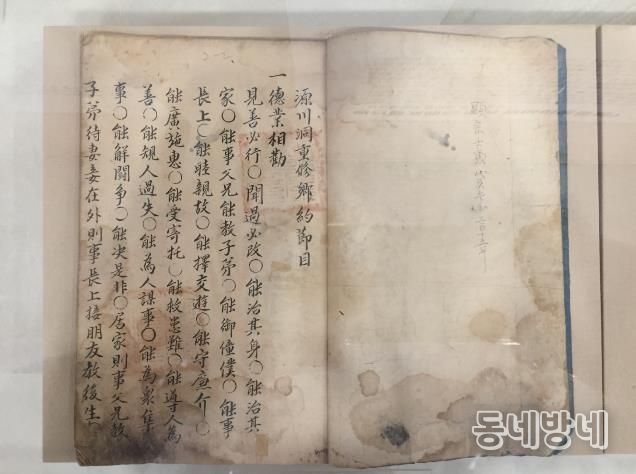 源川洞重修鄉約節目
一德業相勸
見善必行〇聞過必改〇能治其身〇能治其
家〇能事父兄能教子弟〇能御僮僕〇能事
長上〇能睦親故〇能擇交遊〇能守廉介〇
能廣施惠〇能受寄托〇能救患難〇能導人為
善〇能規人過失〇能為人謀事〇能為衆集
事〇能解鬪爭〇能决是非〇居家則事父兄教
子弟待妻妾在外則事長上接朋友教後生
동네방네